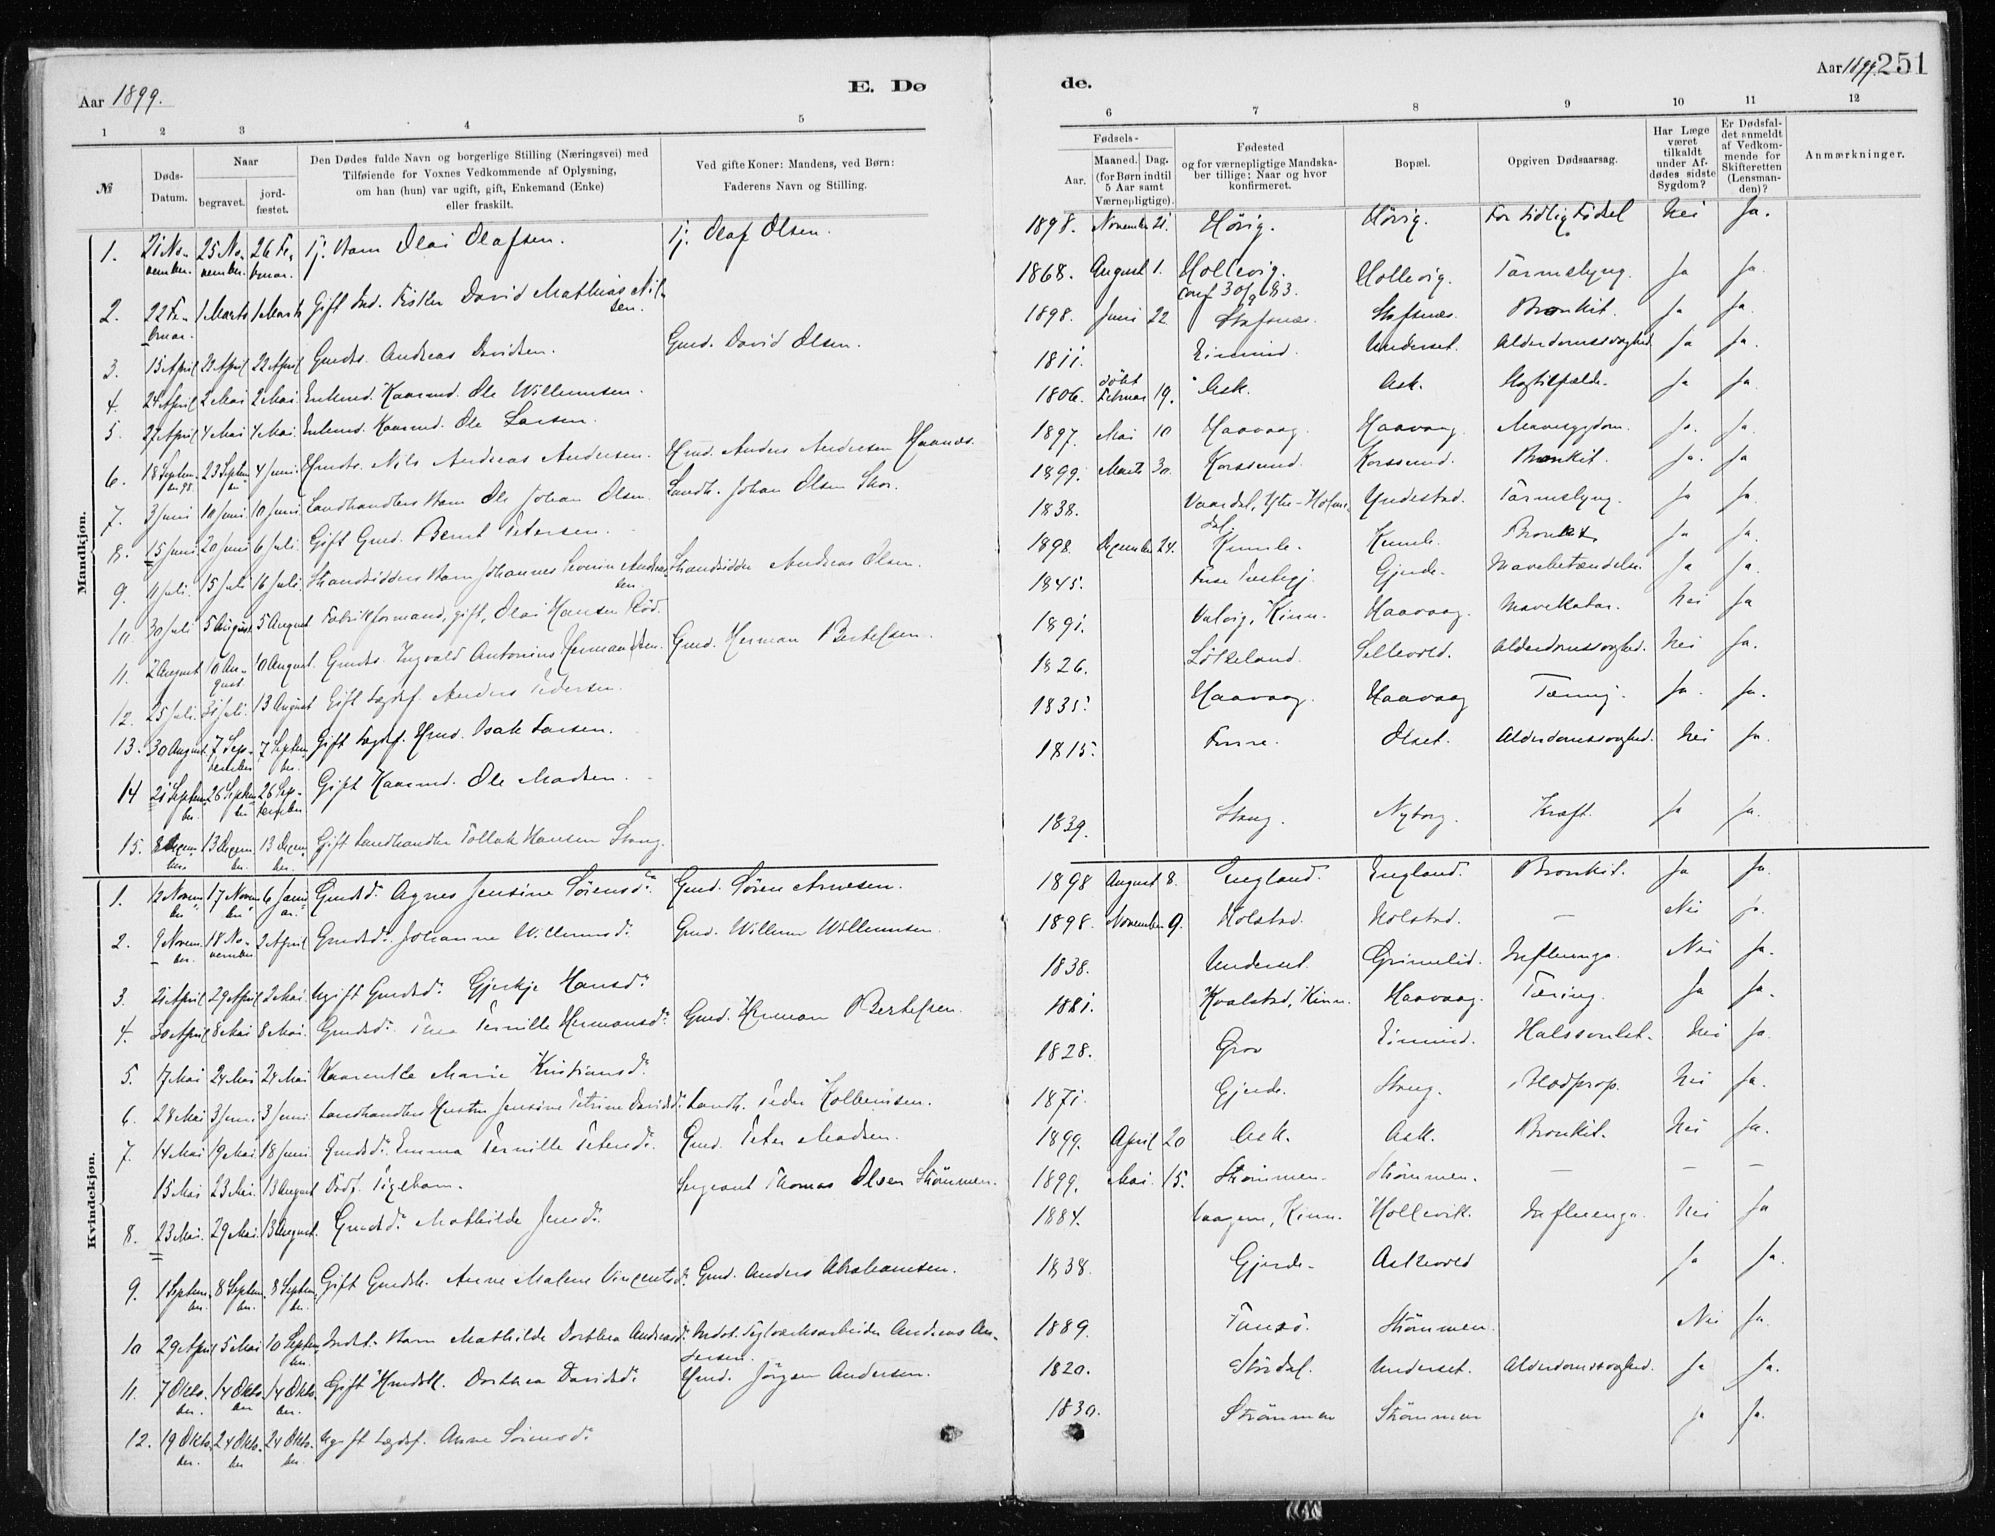 Aar 1899.
E. Dø
de.
Aar 1899. 251
1 2 3 4 5
6 7 8 9 10 11 12
№
Døds-
Datum.
Naar
begravet.
jord-
fæstet.
Den Dødes fulde Navn og borgerlige Stilling (Næringsvei) med
Tilføiende for Voxnes Vedkommende af Oplysning,
om han (hun) var ugift, gift, Enkemand (Enke)
eller fraskilt.
Ved gifte Koner: Mandens, ved Børn:
Faderens Navn og Stilling.
Fødsels-
Aar.
Maaned. Dag.
(for Børn indtil
5 Aar samt
Værnepligtige).
Fødested
og for værnepligtige Mandska-
ber tillige: Naar og hvor
konfirmeret.
Bopæl.
Opgiven Dødsaarsag.
Har Læge
været
tilkaldt
under Af-
dødes sidste
Sygdom?
Er Dødsfal-
det anmeldt
af Vedkom-
mende for
Skifteretten
(Lensman-
den)?
Anmærkninger.
Mandkjøn.
1. 21 November. 25 November. 26 Februar. Tj. Barn Olai Olafsen. Tj. Olaf Olsen. 1898. November 21. Hövig. Hövig. For tidlig Födsel Nei Ja.
2. 22 Februar. 1 Marts 1 Marts Gift Ind. Fisker David Mathias Nilsen. 1868. August 1. Hollevig. conf 30/9 83. Hollevig. Tarmslyng. Ja Ja.
3. 15 April 21 April 22 April Gmds. Andreas Davidsen. Gmd. David Olsen. 1898. Juni 22. Stafsnæs. Stafsnæs. Bronkit. Ja Ja.
4. 24 April 2 Mai 2 Mai Enkmd. Kaarmd. Ole Willumsen. 1811. Eimind. Underset. Alderdomssvaghed Ja Ja.
5. 27 April 4 Mai 4 Mai. Enkmd. Kaarmd. Ole Larsen. 1806. döbt Februar 19. Ask. Ask. Ja Ja.
6. 18 September 98. 23 September 4 Juni. Hmds. Nils Andreas Andersen. Hmd. Anders Andersen Haanes. 1897. Mai 10 Haavaag. Haavaag. Mavesygdom. Ja. Ja.
7. 3 Juni 10 Juni 10 Juni Landhandlers Barn Ole Johan Olsen. Landh. Johan Olsen Skor. 1899. Marts 30. Korssund. Korssund. Bronkit. Ja. Ja
8. 15 Juni 20 Juni 6 Juli. Gift Gmd. Bernt Petersen. 1838. Vaardal, Ytre-Holmedal. Yndestad. Tarmslyng. Ja Ja
9. 11 Juli. 15 Juli 16 Juli. Strandsidders Barn Johannes Severin Andreassen. Strandsidder Andreas Olsen. 1898. December 24. Kumle. Kumle. Bronkit Ja Ja.
10. 30 Juli 5 August 5 August Fabrikformand, gift, Olai Hansen Röd. 1845. Fure Præstegj. Gjerde. Mavebetændelse. Ja Ja.
11. 2 August 10 August. 10 August. Gmds. Ingvald Antonius Hermandsen. Gmd. Herman Bertelsen. 1891. Valvig, Kinn. Haavaag. Mavekatar. Nei Ja
12. 25 Juli. 31 Juli. 13 August Gift Lægdsf. Anders Pedersen. 1826. Lökkeland. Sellevold. Alderdomssvaghed. Nei Ja.
13. 30 August. 7 September 7 September. Gift Lægdsf. Hmd. Isak Larsen. 1835. Haavaag. Haavaag Tæring. Ja. Ja.
14 21 September. 26 September 26 September Gift Kaarmd. Ole Madsen. 1815. Furre. Olset. Alderdomssvaghed. Nei Ja.
15. 8 December. 13 December. 13 December. Gift Landhandler Tollak Hansen Stang. 1839. Stang. Nyborg. Kræft. Ja Ja.
Kvindekjøn.
1. 12 November 17 November 6 Januar. Gmdsd. Agnes Jensine Sörensd. Gmd. Sören Arnesen. 1898 August 8. England. England. Bronkit. Ja Ja.
2. 9 November. 18 November 2 April Gmdsd. Johanne Willumsd. Gmd. Willum Willumsen. 1898. November 9. Holstad. Holstad. — Nei Ja.
3. 21 April 29 April 2 Mai. Ugift Gmdsd. Gjertje Hansd. 1838. Underset. Grimelid. Influenza. Nei Ja.
4. 30 April 8 Mai 8 Mai. Gmdsd. Thea Pernille Hermansd. Gmd. Herman Bertelsen. 1881. Kvalstad, Kinn. Haavaag. Tæring. Ja Ja.
5. 17 Mai 24 Mai 24 Mai Kaarenke Marie Kristiansd. 1828. Grov Eimind. Halssvulst. Nei Ja.
6. 28 Mai 3 Juni 3 Juni Landhandlers Hustru Jensine Petrine Davidsd. Landh. Peder Kolbeinsen. 1871. Gjerde. Stang. Blodprop. Nei Ja.
7. 14 Mai 19 Mai 18 Juni Gmdsd. Emma Pernille Petersd. Gmd. Peter Madsen. 1899. April 20 Ask. Ask. Bronkit. Nei Ja.
15 Mai 23 Mai. 13 August Dödf. Pigebarn. Sergeant Thomas Olsen Strömmen. 1899. Mai. 15. Strömmen. Strömmen. — — —
8. 23 Mai. 29 Mai. 13 August. Gmdsd. Mathilde Jensd. 1884. Kinn. Hollevik. Influenza. Nei Ja
9. 1 September. 8 September. 8 September. Gift Gmdsk. Anne Malene Vincentsd. Gmd. Anders Abrahamsen. 1838. Gjerde. Askevold Ja Ja.
10 29 April 5 Mai 10 September. Indst. Barn Mathilde Dorthea Andreasd. Indst. Teglværksarbeider Andreas Andersen. 1889. Fansö. Strömmen. Nei Ja.
11. 7 Oktober. 14 Oktober 14 Oktober. Gift Hmdsk. Dorthea Davidsd. Hmd. Jörgen Andersen. 1820. Stördal. Underset. Alderdomssvaghed. Ja Ja.
12. 19 Oktober. 24 Oktober 24 Oktober. Ugift Lægdsf. Anne Sörensd. 1830. Strömmen Strömmen Ja Ja.